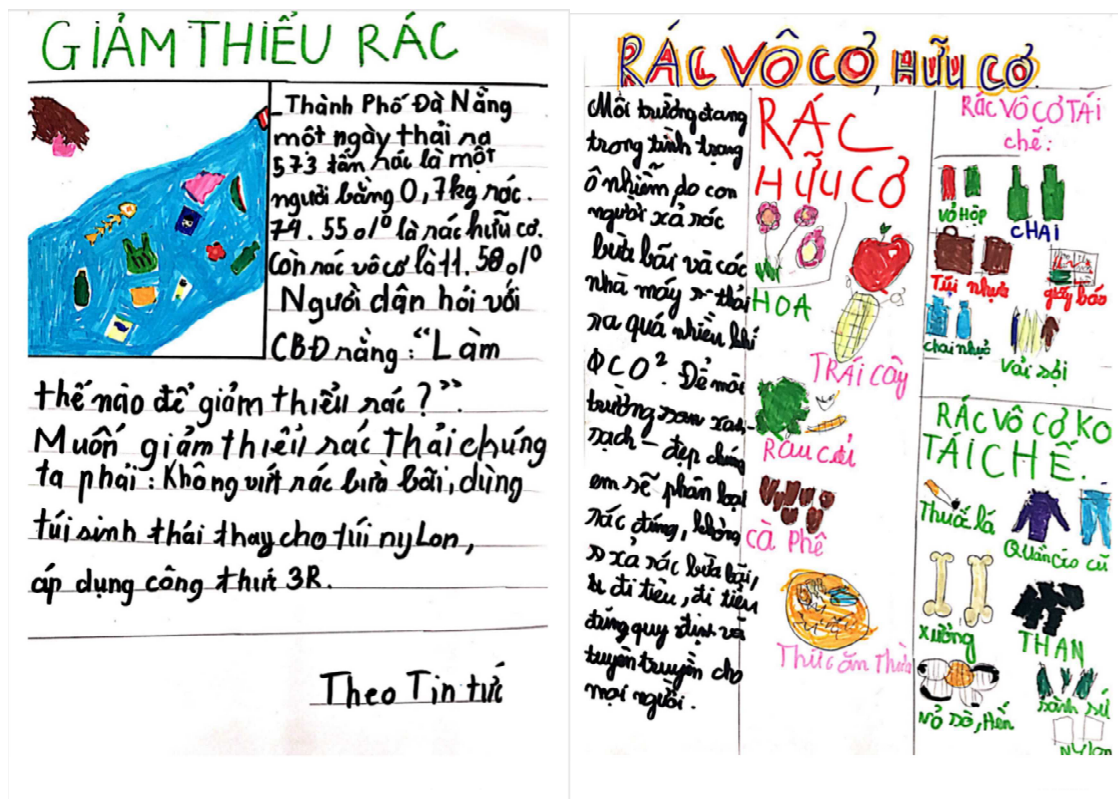 GIẢM THIỂU RÁC
- Thành Phố Đà Nẵng
một ngày thải ra
573 tấn rác là một
người bằng 0,7kg rác.
74.55 o/o là rác hữu cơ.
Còn rác vô cơ là 11.58 o/o
Người dân hỏi với
CBĐ rằng: "Làm
thế nào để giảm thiểu rác?".
Muốn giảm thiểu rác thải chúng
ta phải: Không vứt rác bừa bãi, dùng
túi sinh thái thay cho túi nyLon,
áp dụng công thức 3R.
Theo Tin tức
RÁC VÔ CƠ, HỮU CƠ
Môi trường đang
trong tình trạng
ô nhiễm do con
người xả rác
bừa bãi và các
nhà máy thải
ra quá nhiều khí
CO². Để môi
trường xanh-
sạch - đẹp chúng
em sẽ phân loại
rác đúng, không
xả rác bừa bãi,
đi tiêu, đi tiểu
đúng quy định và
tuyên truyền cho
mọi người.
RÁC
HỮU CƠ
HOA
TRÁI CÂY
RAU CỦ
cà Phê
Thức ăn Thừa
RÁC VÔ CƠ TÁI
chế:
vỏ Hộp
CHAI
Túi nhựa
giấy báo
chai nhựa
Vải sợi
RÁC VÔ CƠ KO
TÁI CHẾ.
Thuốc lá
Quần áo cũ
xương
THAN
vỏ sò, Hến
sành sứ
Nylon